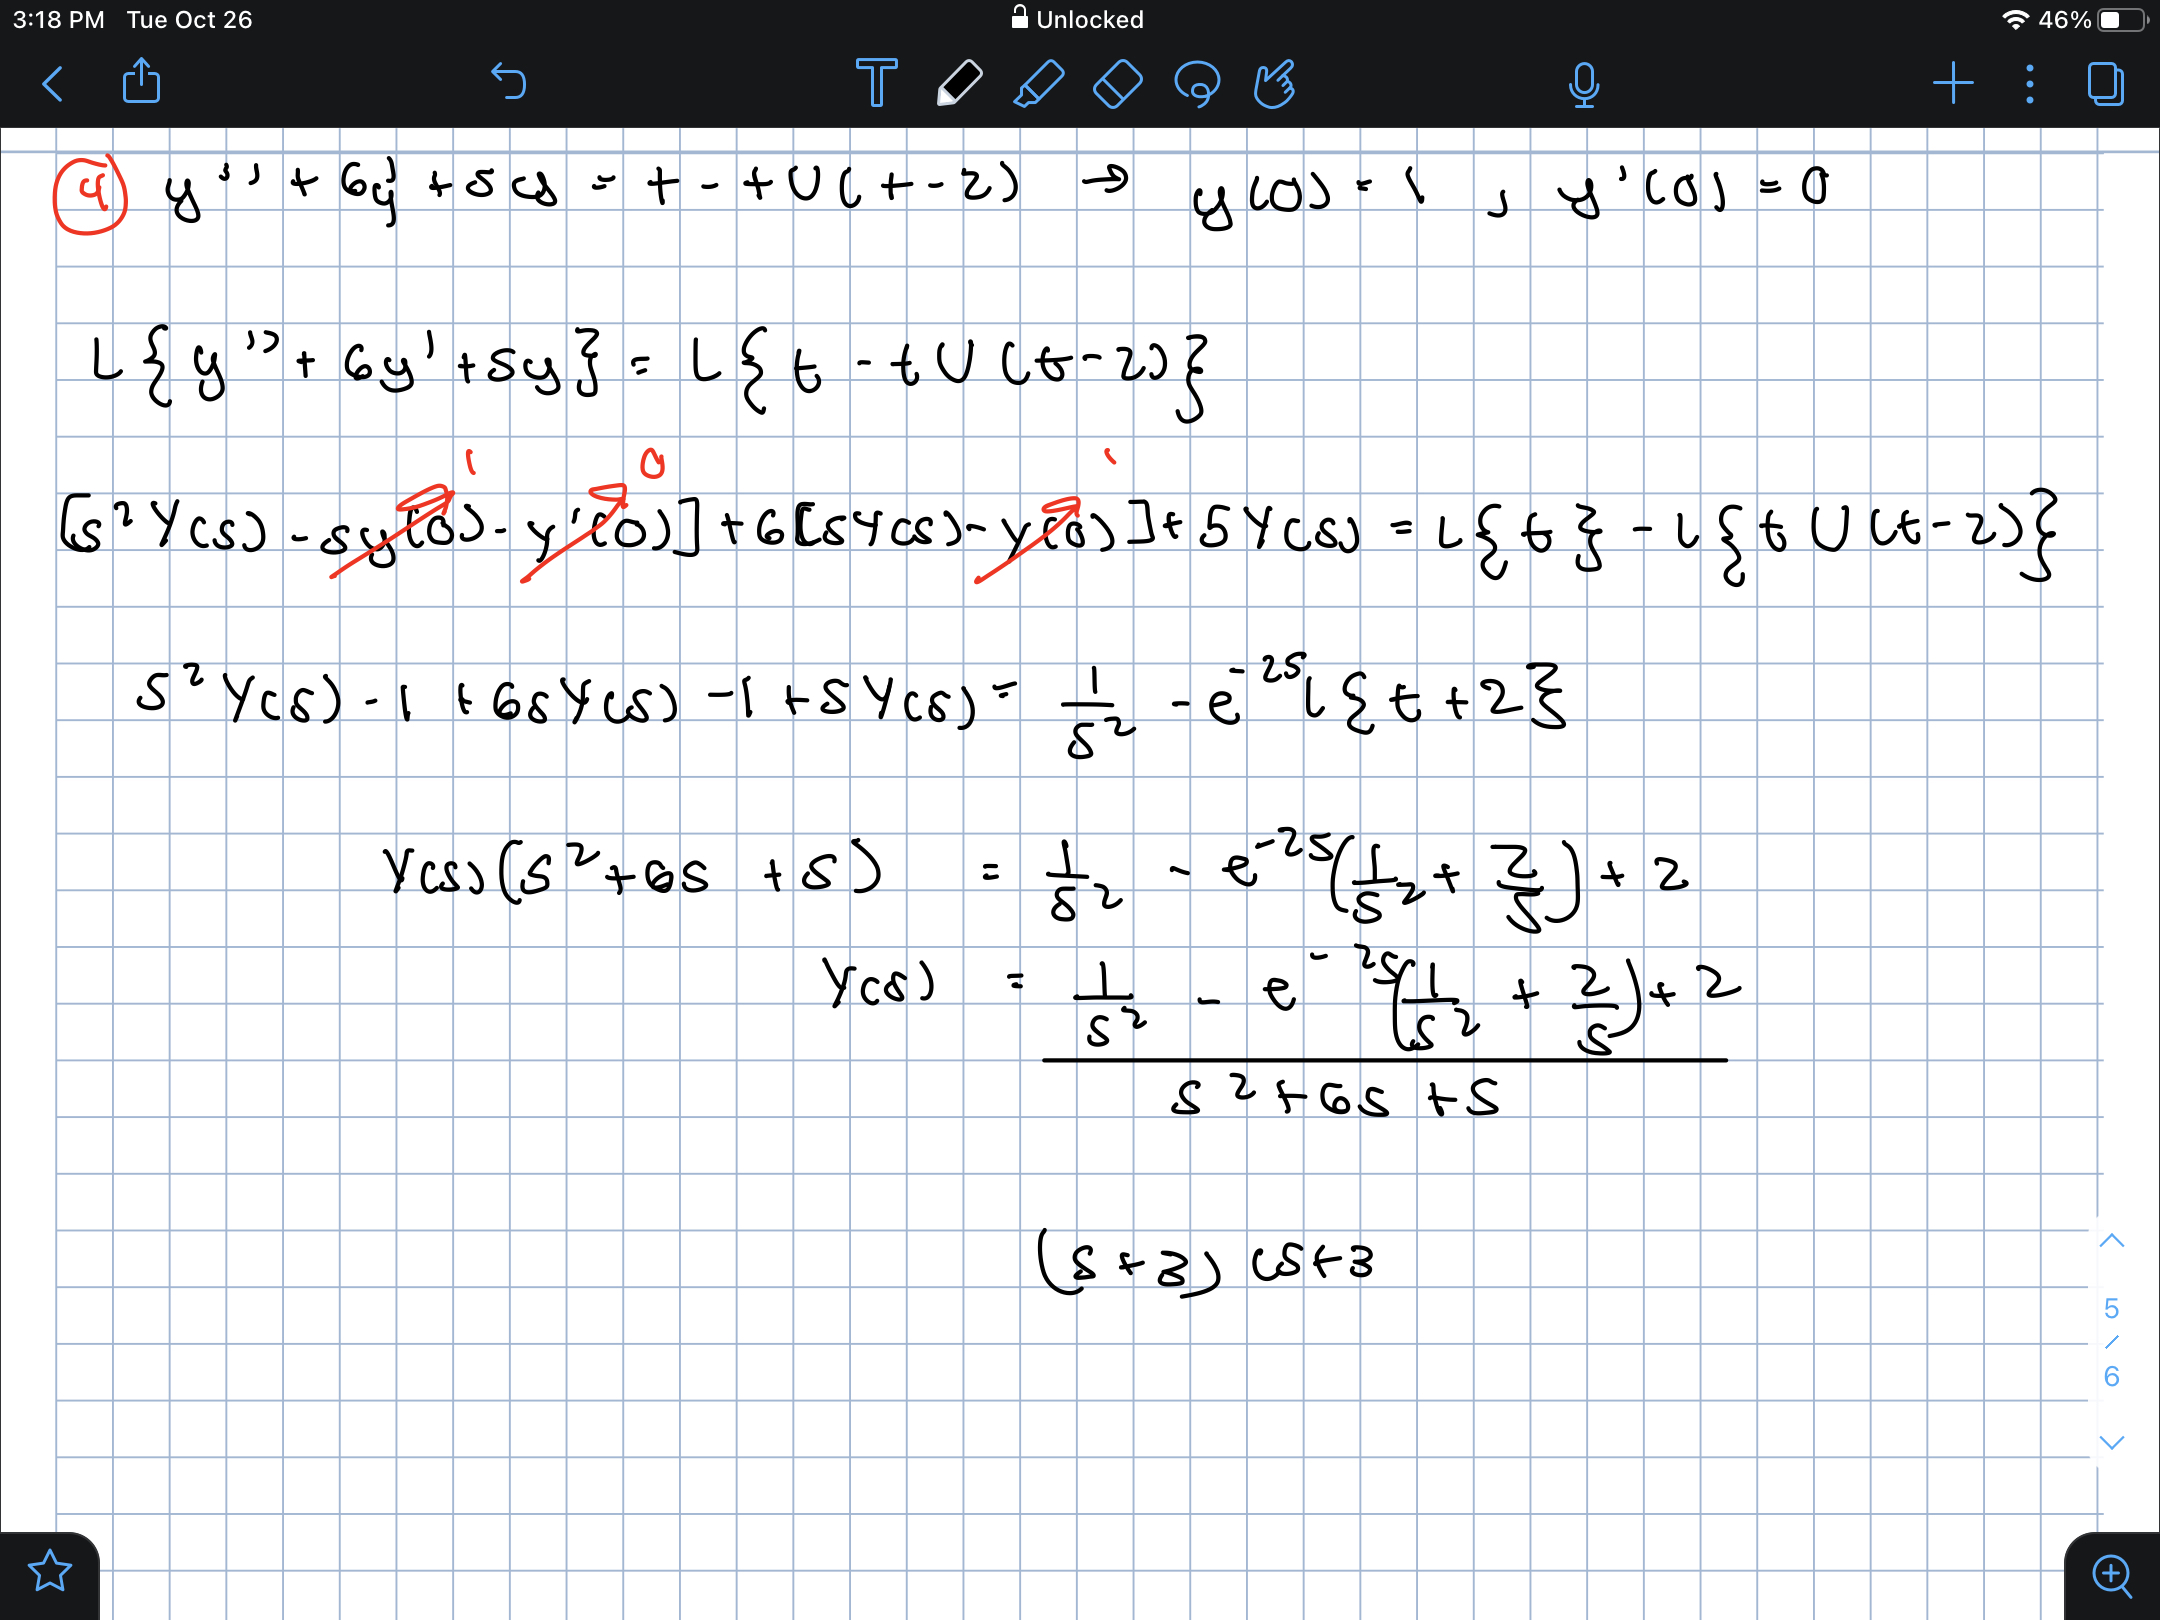 3:18 PM Tue Oct 26 Unlocked 46%
T
4 y'' + 6y' + 5y = t - t U(t-2) → y(0) = 1 , y'(0) = 0
L{y'' + 6y' + 5y} = L{t - t U(t-2)}
1 0 1
[s²Y(s) - sy(0) - y'(0)] + 6[sY(s) - y(0)] + 5Y(s) = L{t} - L{t U(t-2)}
s²Y(s) - 1 + 6sY(s) - 1 + 5Y(s) = 1/s² - e^-2s L{t+2}
Y(s)(s² + 6s + 5) = 1/s² - e^-2s (1/s² + 2/s) + 2
Y(s) = 1/s² - e^-2s (1/s² + 2/s) + 2
s² + 6s + 5
(s+3)(s+3
5
/
6